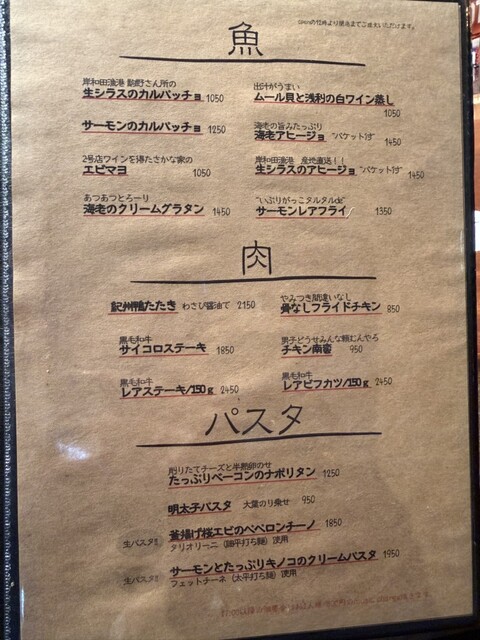 魚
岸和田漁港
生シラスのカルパッチョ 1050
サーモンのカルパッチョ 1250
2号店ワインを得たさかな家の
エビマヨ 1050
あつあつとろーり
海老のクリームグラタン 1450
出汁がうまい
ムール貝と浅利の白ワイン蒸し
1050
海老の旨みたっぷり
海老アヒージョ バケット付 1450
岸和田漁港 産地直送！！
生シラスのアヒージョ バケット付 1450
"いぶりがっこタルタルde"
サーモンレアフライ 1350
肉
紀州鴨たたき わさび醤油で 2150
黒毛和牛
サイコロステーキ 1850
黒毛和牛
レアステーキ/150g 2450
やみつき間違いなし
骨なしフライドチキン 850
男子どうせみんな頼むんやろ
チキン南蛮 950
黒毛和牛
レアビフカツ/150g 2450
パスタ
削りたてチーズと半熟卵のせ
たっぷりベーコンのナポリタン 1250
明太子パスタ 大葉のり乗せ 950
生パスタ!!
釜揚げ桜エビのペペロンチーノ 1850
タリオリーニ（細平打ち麺）使用
生パスタ!!
サーモンとたっぷりキノコのクリームパスタ 1950
フェットチーネ（太平打ち麺）使用